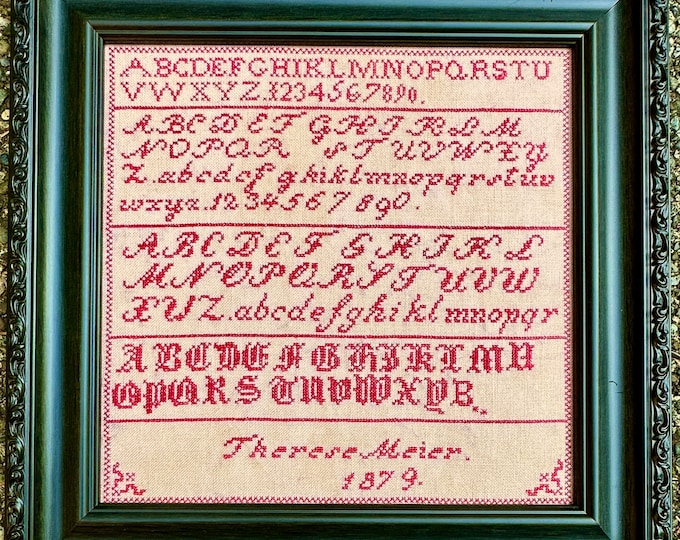 ABCDEFGHIKLMNOPQRSTU
VWXYZ.1234567890.
ABCDEFGHIKLM
NOPQR STUVWXY
Z.abcdefghiklmnopqrstuv
wxyz.1234567890.
ABCDEFGHIKL
MNOPQRSTUVW
XYZ.abcdefghiklmnopqr
ABCDEFGHIKLMN
OPQRSTUVWXYZ.
Therese Meier.
1879.